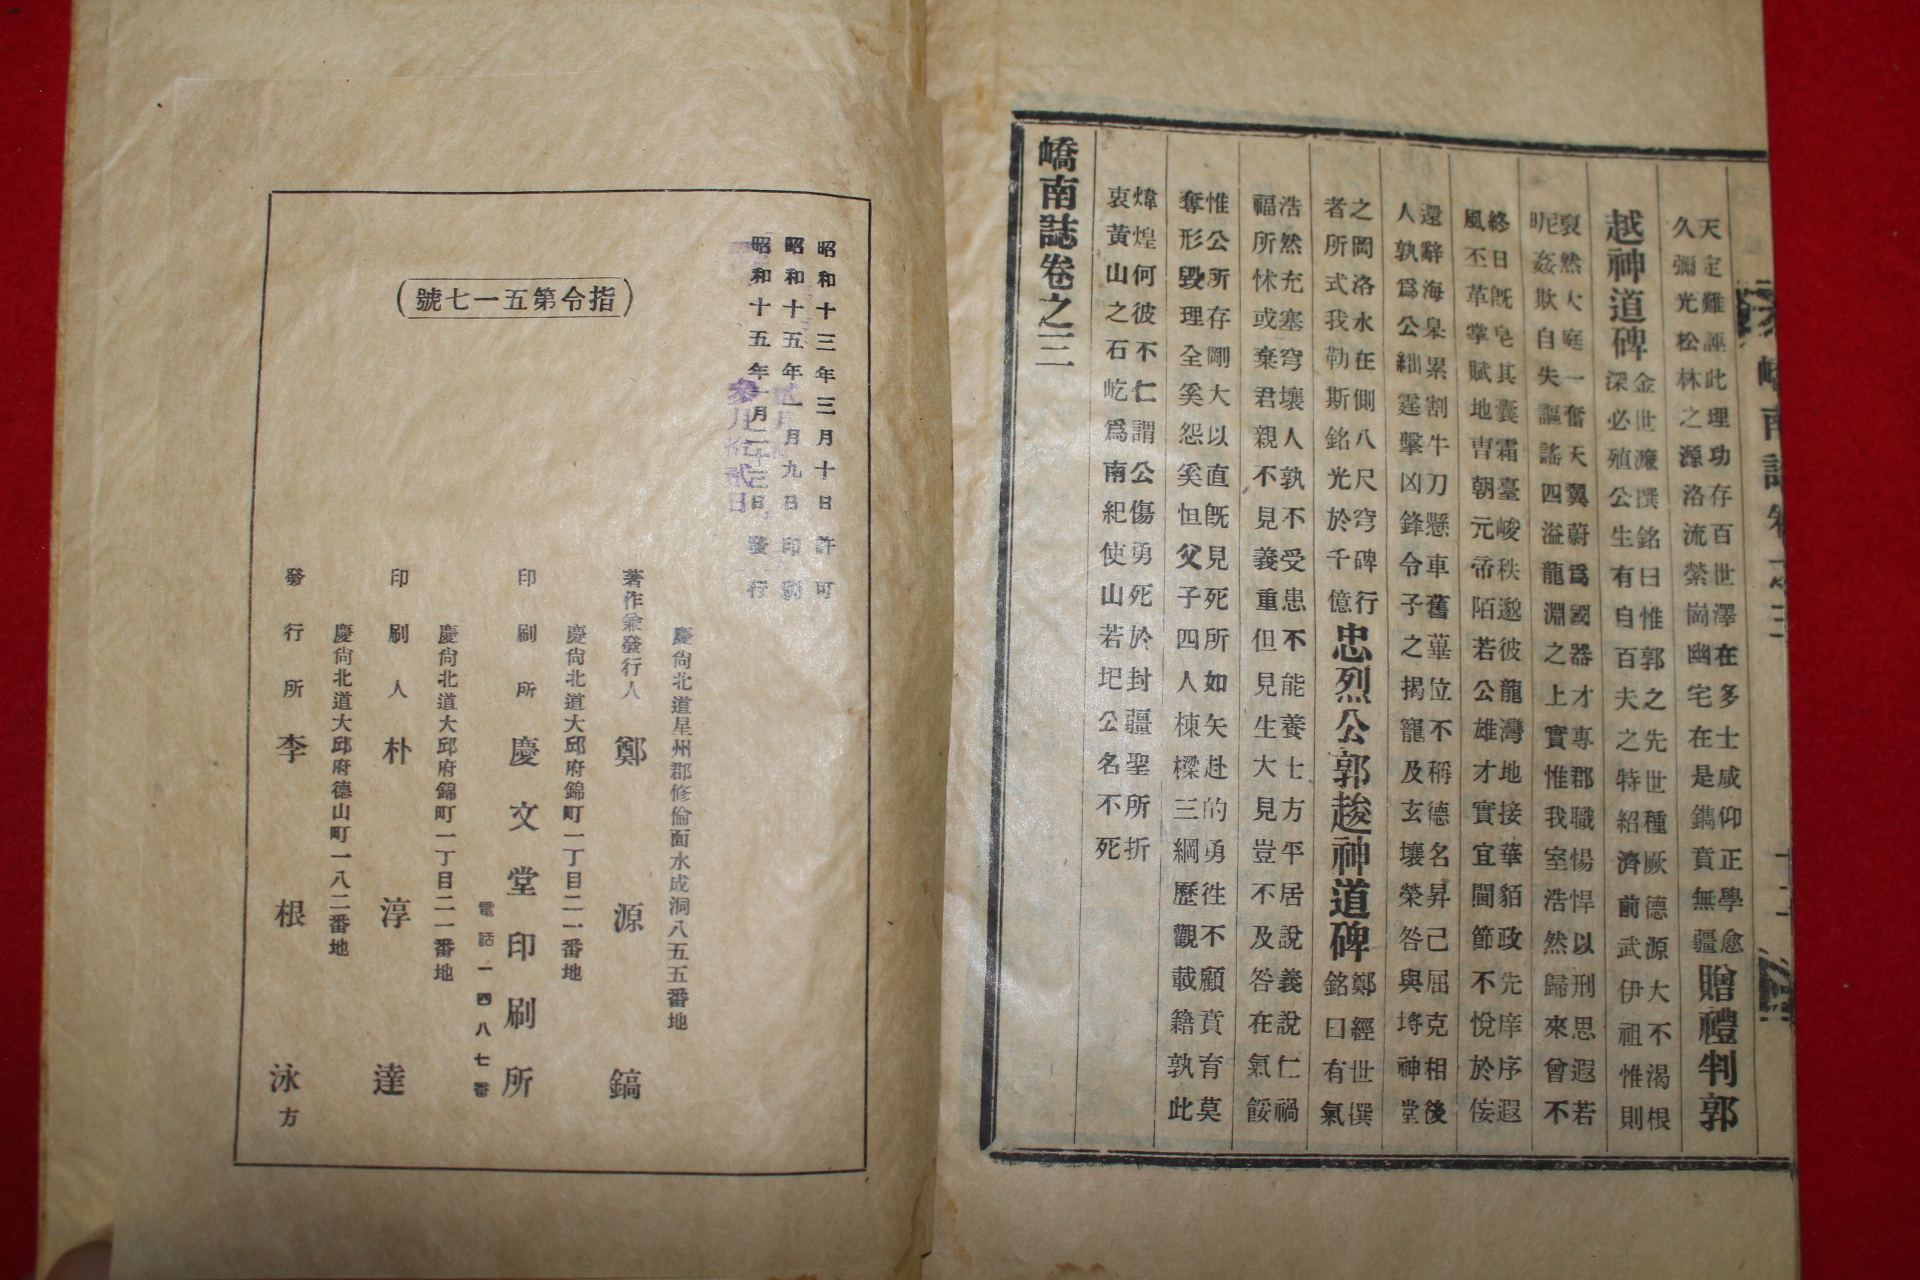 天定難誣此理功存百世澤在多士咸仰正學愈
久彌光松林之源洛流縈崗幽宅在是鐫賁無疆
贈禮判郭
越神道碑
金世濂撰銘曰惟郭之先世種厥德源大不渴根
深必殖公生有自百夫之特紹濟前武伊祖惟則
裒然大庭一奮天翼蔚爲國器才專郡職惕悍以刑思遐若
昵姦欺自失謳謠四溢龍淵之上實惟我室浩然歸來曾不
終日既皂其囊霜臺峻秩邈彼龍灣地接華貊政先庠序遐
風丕革掌賦地曺朝元帝陌若公雄才實宜閫節不悅於侫
還辭海臬累割牛刀懸車舊蓽位不稱德名昇己屈克相後
人孰爲公絀霆擊凶鋒令子之揭寵及玄壤榮答與埓神堂
之岡洛水在側八尺穹碑行
者所式我勒斯銘光於千億
忠烈公郭䞭神道碑
鄭經世撰
銘曰有氣
浩然充塞穹壤人孰不受患不能養士方平居說義說仁禍
福所怵或棄君親不見義重但見生大見豈不及咎在氣餒
惟公所存剛大以直既見死所如矢赴的勇徃不顧賁育莫
奪形毀理全奚怨奚怛父子四人棟樑三綱歷觀載籍孰此
煒煌何彼不仁謂公傷勇死於封疆聖所折
衷黃山之石屹爲南紀使山若圯公名不死
嶠南誌卷之三
昭和十三年三月十日許可
昭和十五年一月九日印刷
昭和十五年一月二十三日發行
參月拾貳日
(指令第五一七號)
慶尙北道星州郡修倫面水成洞八五五番地
著作兼發行人 鄭源鎬
慶尙北道大邱府錦町一丁目二一番地
印刷所 慶文堂印刷所
電話一四八七番
慶尙北道大邱府錦町一丁目二一番地
印刷人 朴淳達
慶尙北道大邱府德山町一八二番地
發行所 李根泳方